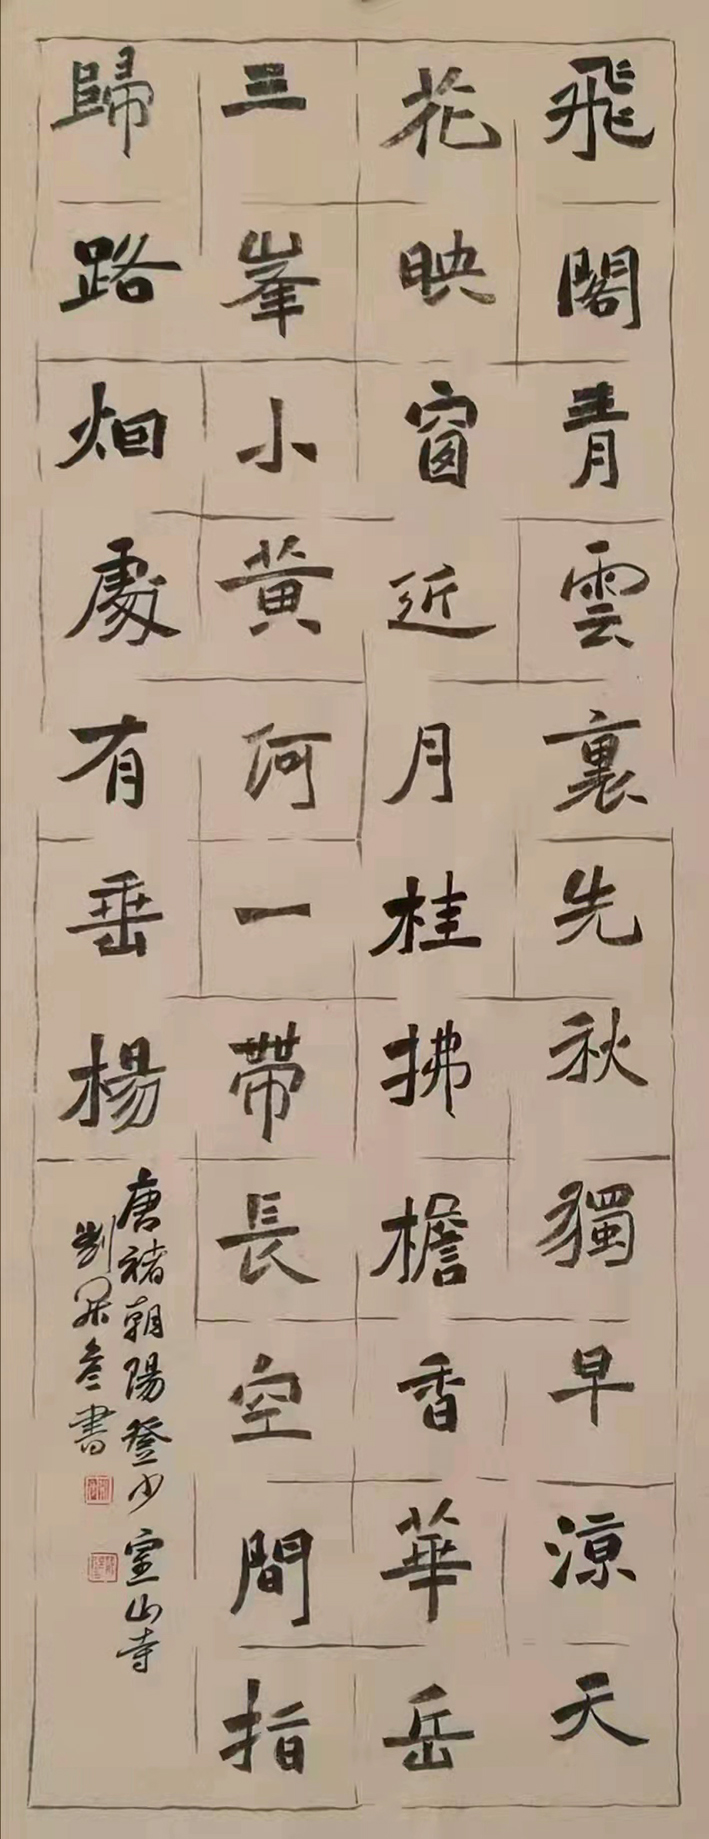 飛閣青雲裏先秋獨早涼天
花映窗近月桂拂檐香華岳
三峯小黄河一帶長空間指
歸路烟處有垂楊
唐褚朝陽登少室山寺
書